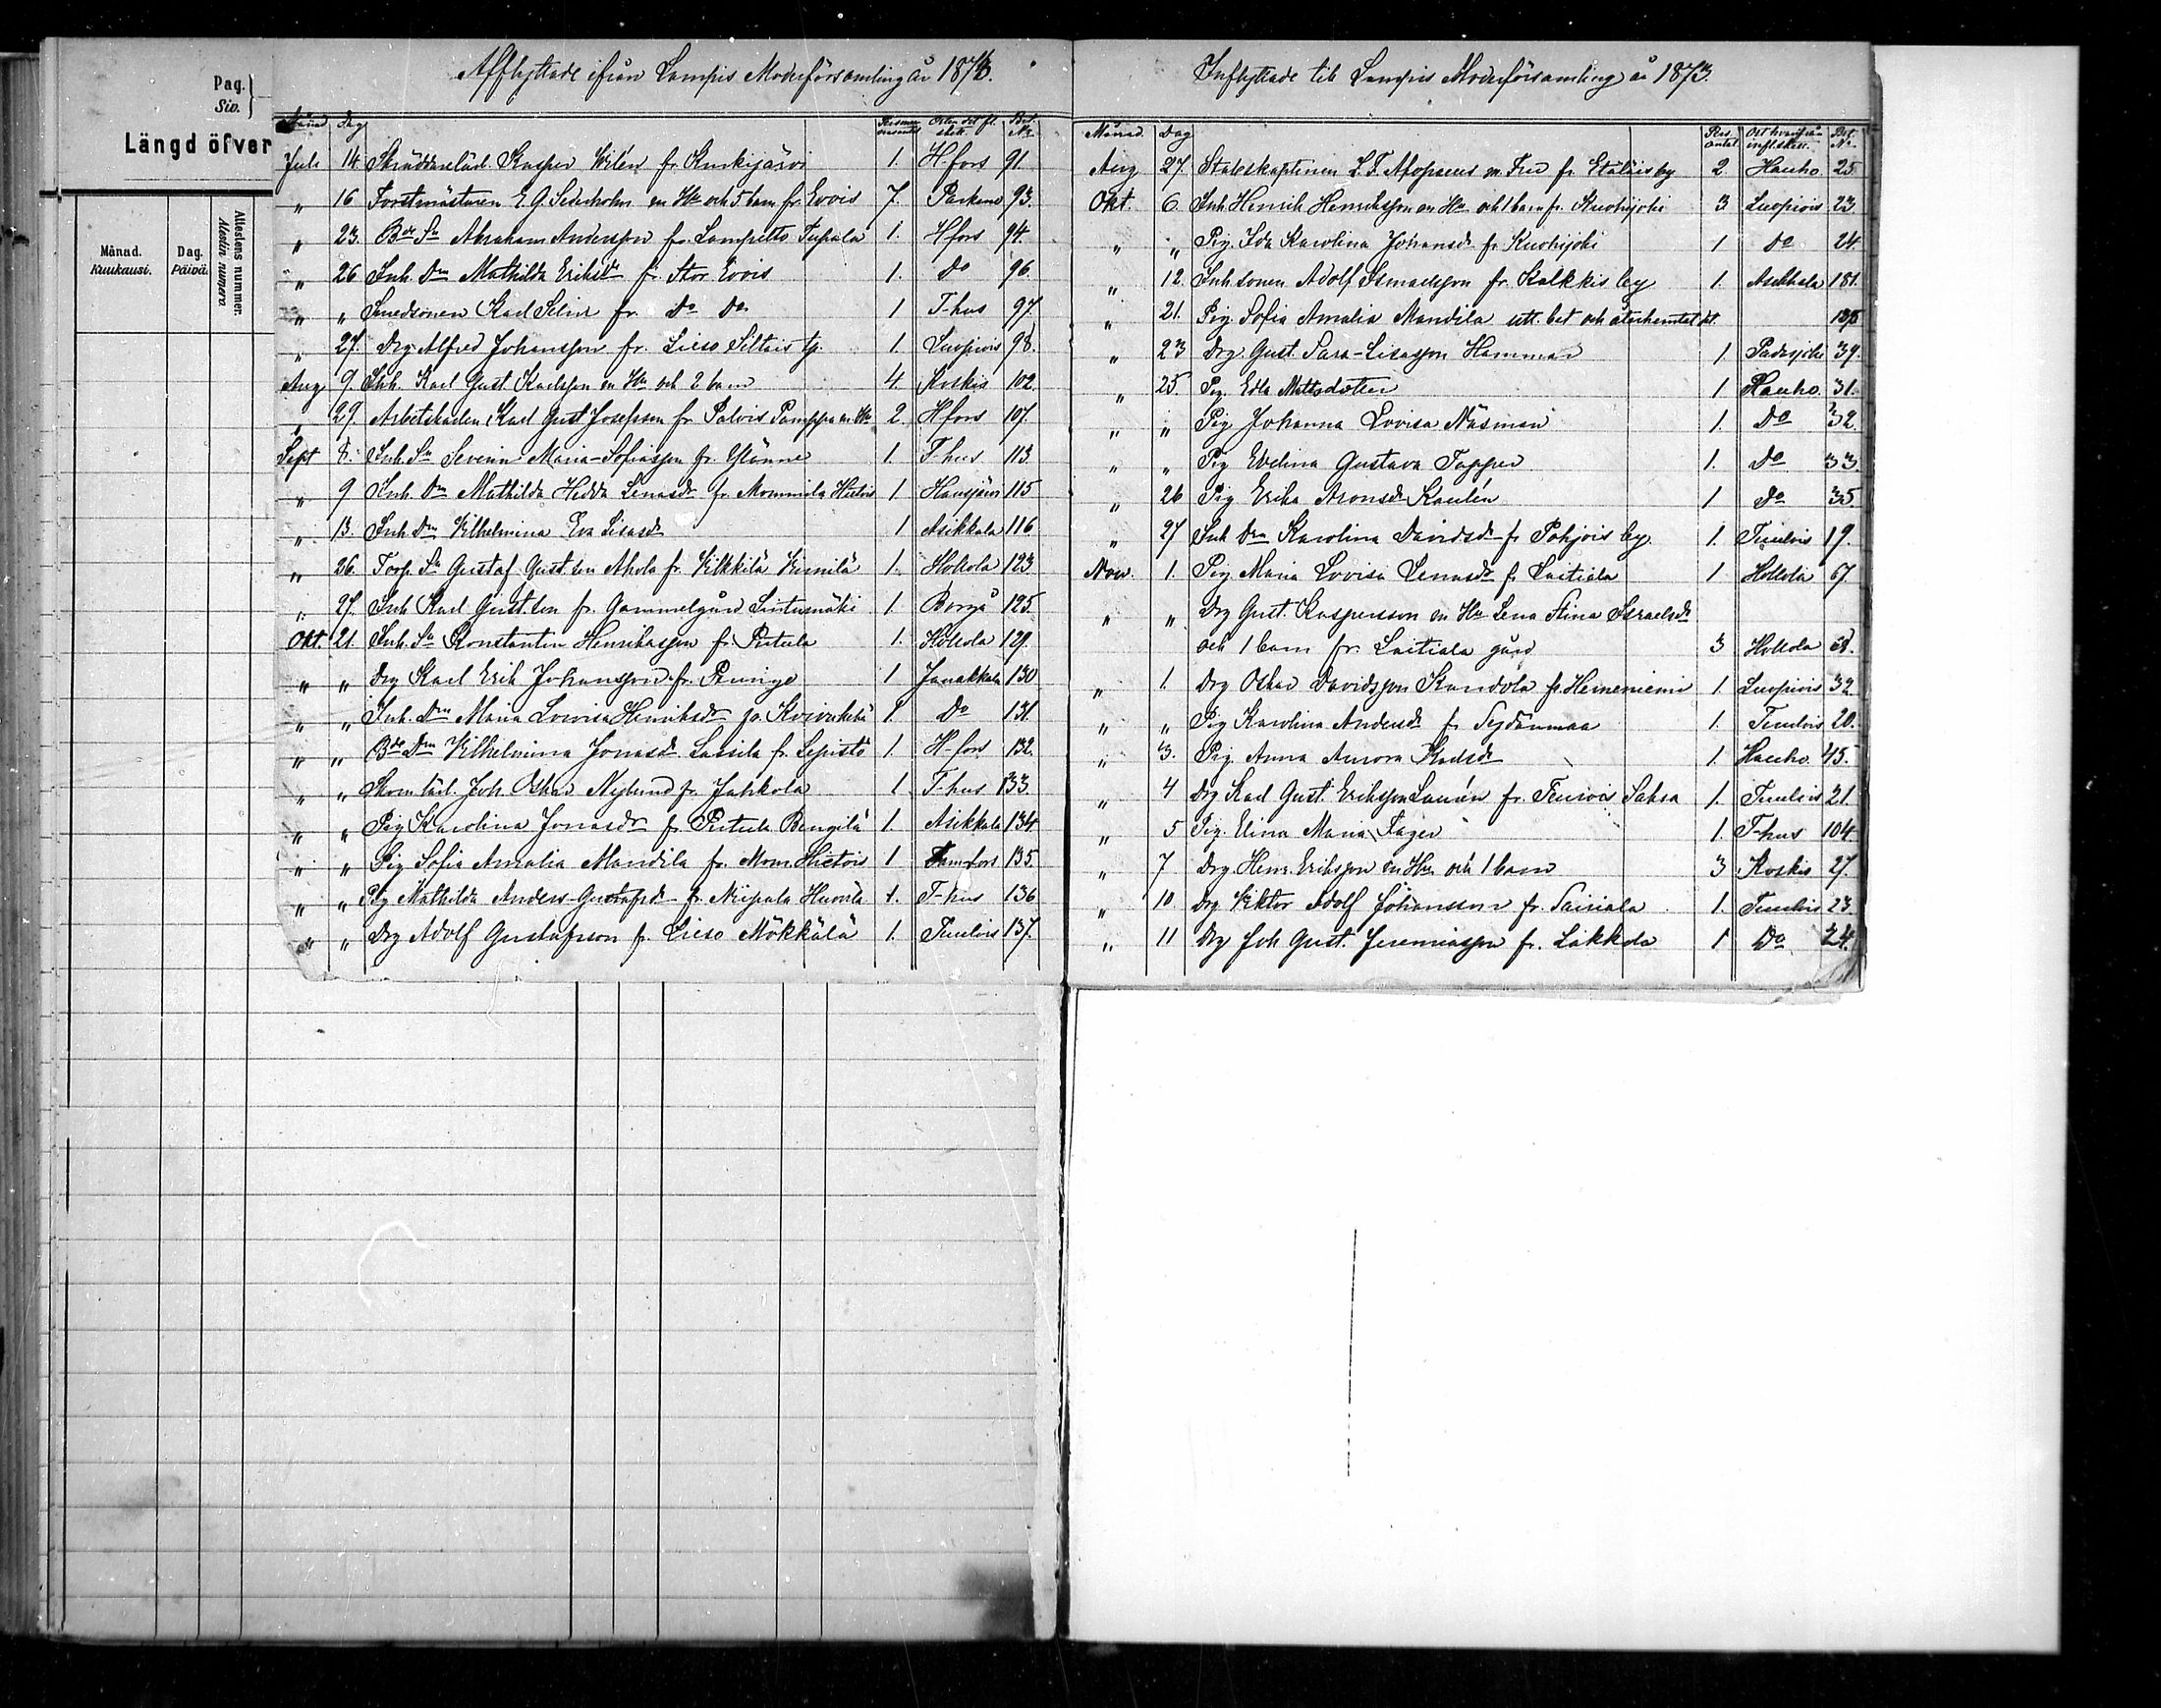 Pag.
Siv.
Längd öfver
Månad.
Kuukausi.
Dag.
Päivä.
Attestens nummer.
Afflyttade ifrån Lampis Moderförsamling år 1873.
Månad Dag Bet. Nr.
Juli 14. Skräddarelärl. Kasper Wilén fr. Kurkijärvi 1. H-fors 91.
" 16 Forstmästaren E. G. Sederholm m Hu och 5 barn fr. Evois 7. Parkano 93.
" 23. Bde Sn Abraham Andersson fr. Tupala 1. Hfors 94.
" 26 Inh. Drn Mathilda Eriksdr fr. Stor Evois 1. Do 96.
" " Smedsonen Karl Selin fr. Do Do 1 T-hus 97.
" 27. Drg Alfred Johansson fr. Lieso Siltais tp. 1. Luopiois 98.
Aug 9. Inh. Karl Gust. Karlsson m Hu och 2 barn 4. Koskis 102.
" 29. Arbetskarlen Karl Gust Josefsson fr. Palois Pamppa m Hu 2. Hfors 107.
Sept 8. Inh. Sn Severin Maria-Sofiasson fr. Ylänne 1. T-hus 113.
" 9 Inh. Drn Mathilda Hedda Lenasdr fr. Mommila Hietois 1 Hausjärvi 115
" 13. Inh. Drn Vilhelmina Eva Lisasdr 1 Asikkala 116
" 26. Torp. Sn Gustaf Gust.son Ahola fr. Vilkkilä 1. Hollola 123
" 27. Inh Karl Gust.son fr. Gammelgård Lintumäki 1. Borgå 125.
Okt. 21. Inh. Sn Konstantin Henriksson fr. Pitula 1. Hollola 129.
" " Drg Karl Erik Johansson fr. 1 Janakkala 130
" " Inh. Drn Maria Lovisa Henriksdr fr. 1. Do 131.
" " Bde Drn Vilhelmina Jonasdr Lassila fr. Lepistö 1. H-fors 132.
" " Skom.lärl. Joh. Oskar Nylund fr. Jahkola 1 T-hus 133.
" " Pig Karolina Jonasdr fr. Pitula Bengilä 1. Asikkala 134
" " Pig Sofia Amalia Mandila fr. Mom. Hietois 1 Tamfors 135.
" " Pig Mathilda Anders-Gustafsdr fr. 1. T-hus 136
" " Drg Adolf Gustafsson fr. Lieso Mökkälä 1. Tuulois 137.
Inflyttade till Lampis Moderförsamling år 1873.
Månad. Dag Pers. antal Ort hvarifrån inflytt. skett. Bet. Nr.
Aug 27. Stabskaptenen L. F. m Fru fr. by 2 Hauho. 25.
Okt. 6. Inh. Henrik Henriksson m Hu och 1 barn fr. Kuohijoki 3 Luopiois 23.
" " Pig. Ida Karolina Johansdr fr. Kuohijoki 1 Do 24
" 12. Inh.sonen Adolf Ismaelsson fr. Kalkkis by 1. Asikkala 181.
" 21. Pig. Sofia Amalia Mandila utt. bet och återhemtat
" 23 Drg. Gust. Sara-Lisasson Hammar 1. Padasjoki 39.
" 25. Pig. Edla Mattsdotter 1 Hauho. 31.
" " Pig Johanna Lovisa Näsman 1. Do 32.
" " Pig Evelina Gustava Tapper 1. Do 33
" 26 Pig Erika Aronsdr Kaulén 1 Do 35.
" 27 Inh Drn Karolina Davidsdr fr Pohjois by. 1. Tuulois 19.
Nov. 1. Pig Maria Lovisa Lenasdr fr. Laitiala 1 Hollola 67.
" " Drg Gust. Kaspersson m Hu Lena Stina Israelsdr
och 1 barn fr. Laitiala gård 3 Hollola 68.
" 1. Drg Oskar Davidsson Kandola fr. Heineniemi 1. Luopiois 32.
" " Pig Karolina Andersdr fr Sydänmaa 1. Tuulois 20.
" 3. Pig. Anna Aurora Karlsdr 1. Hauho 45.
" 4 Drg Karl Gust. Eriksson Laurén fr. Teurois Saksa 1. Tuulois 21.
" 5 Pig. Elina Maria Fager 1. T-hus 104.
" 7 Drg Henr. Eriksson m Hu och 1 barn 3 Koskis 27.
" 10. Drg Viktor Adolf Johansson fr. Sairiala 1. Tuulois 23.
" 11 Drg Joh Gust. Jeremiasson fr. Lakkola 1 Do 24.